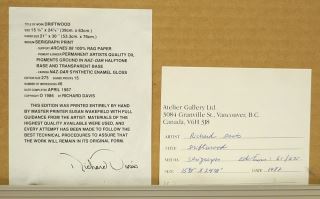 TITLE OF WORK DRIFTWOOD
SIZE 21" x 30" (53.3cm x 76cm)
MEDIUM SERIGRAPH PRINT
SUPPORT ARCHES 88 100% RAG PAPER
PERMANENT ARTISTS QUALITY OIL
PIGMENTS GROUND IN NAZ-DAR HALFTONE
BASE AND TRANSPARENT BASE
NAZ-DAR SYNTHETIC ENAMEL GLOSS
EDITION SIZE 275
APRIL 1987
COPYRIGHT © 1986 BY RICHARD DAVIS
THIS EDITION WAS PRINTED ENTIRELY BY HAND
BY MASTER PRINTER SUSAN WAKEFIELD WITH FULL
GUIDANCE FROM THE ARTIST. MATERIALS OF THE
HIGHEST QUALITY AVAILABLE WERE USED, AND
EVERY ATTEMPT HAS BEEN MADE TO FOLLOW THE
BEST TECHNICAL PROCEDURES TO ASSURE THAT
THE WORK WILL REMAIN IN ITS ORIGINAL FORM.
Richard Davis
Atelier Gallery Ltd.
3084 Granville St., Vancouver, B.C.
Canada, V6H 3J8
ARTIST Richard Davis
TITLE Driftwood
MEDIUM Serigraph
SIZE
PRICE